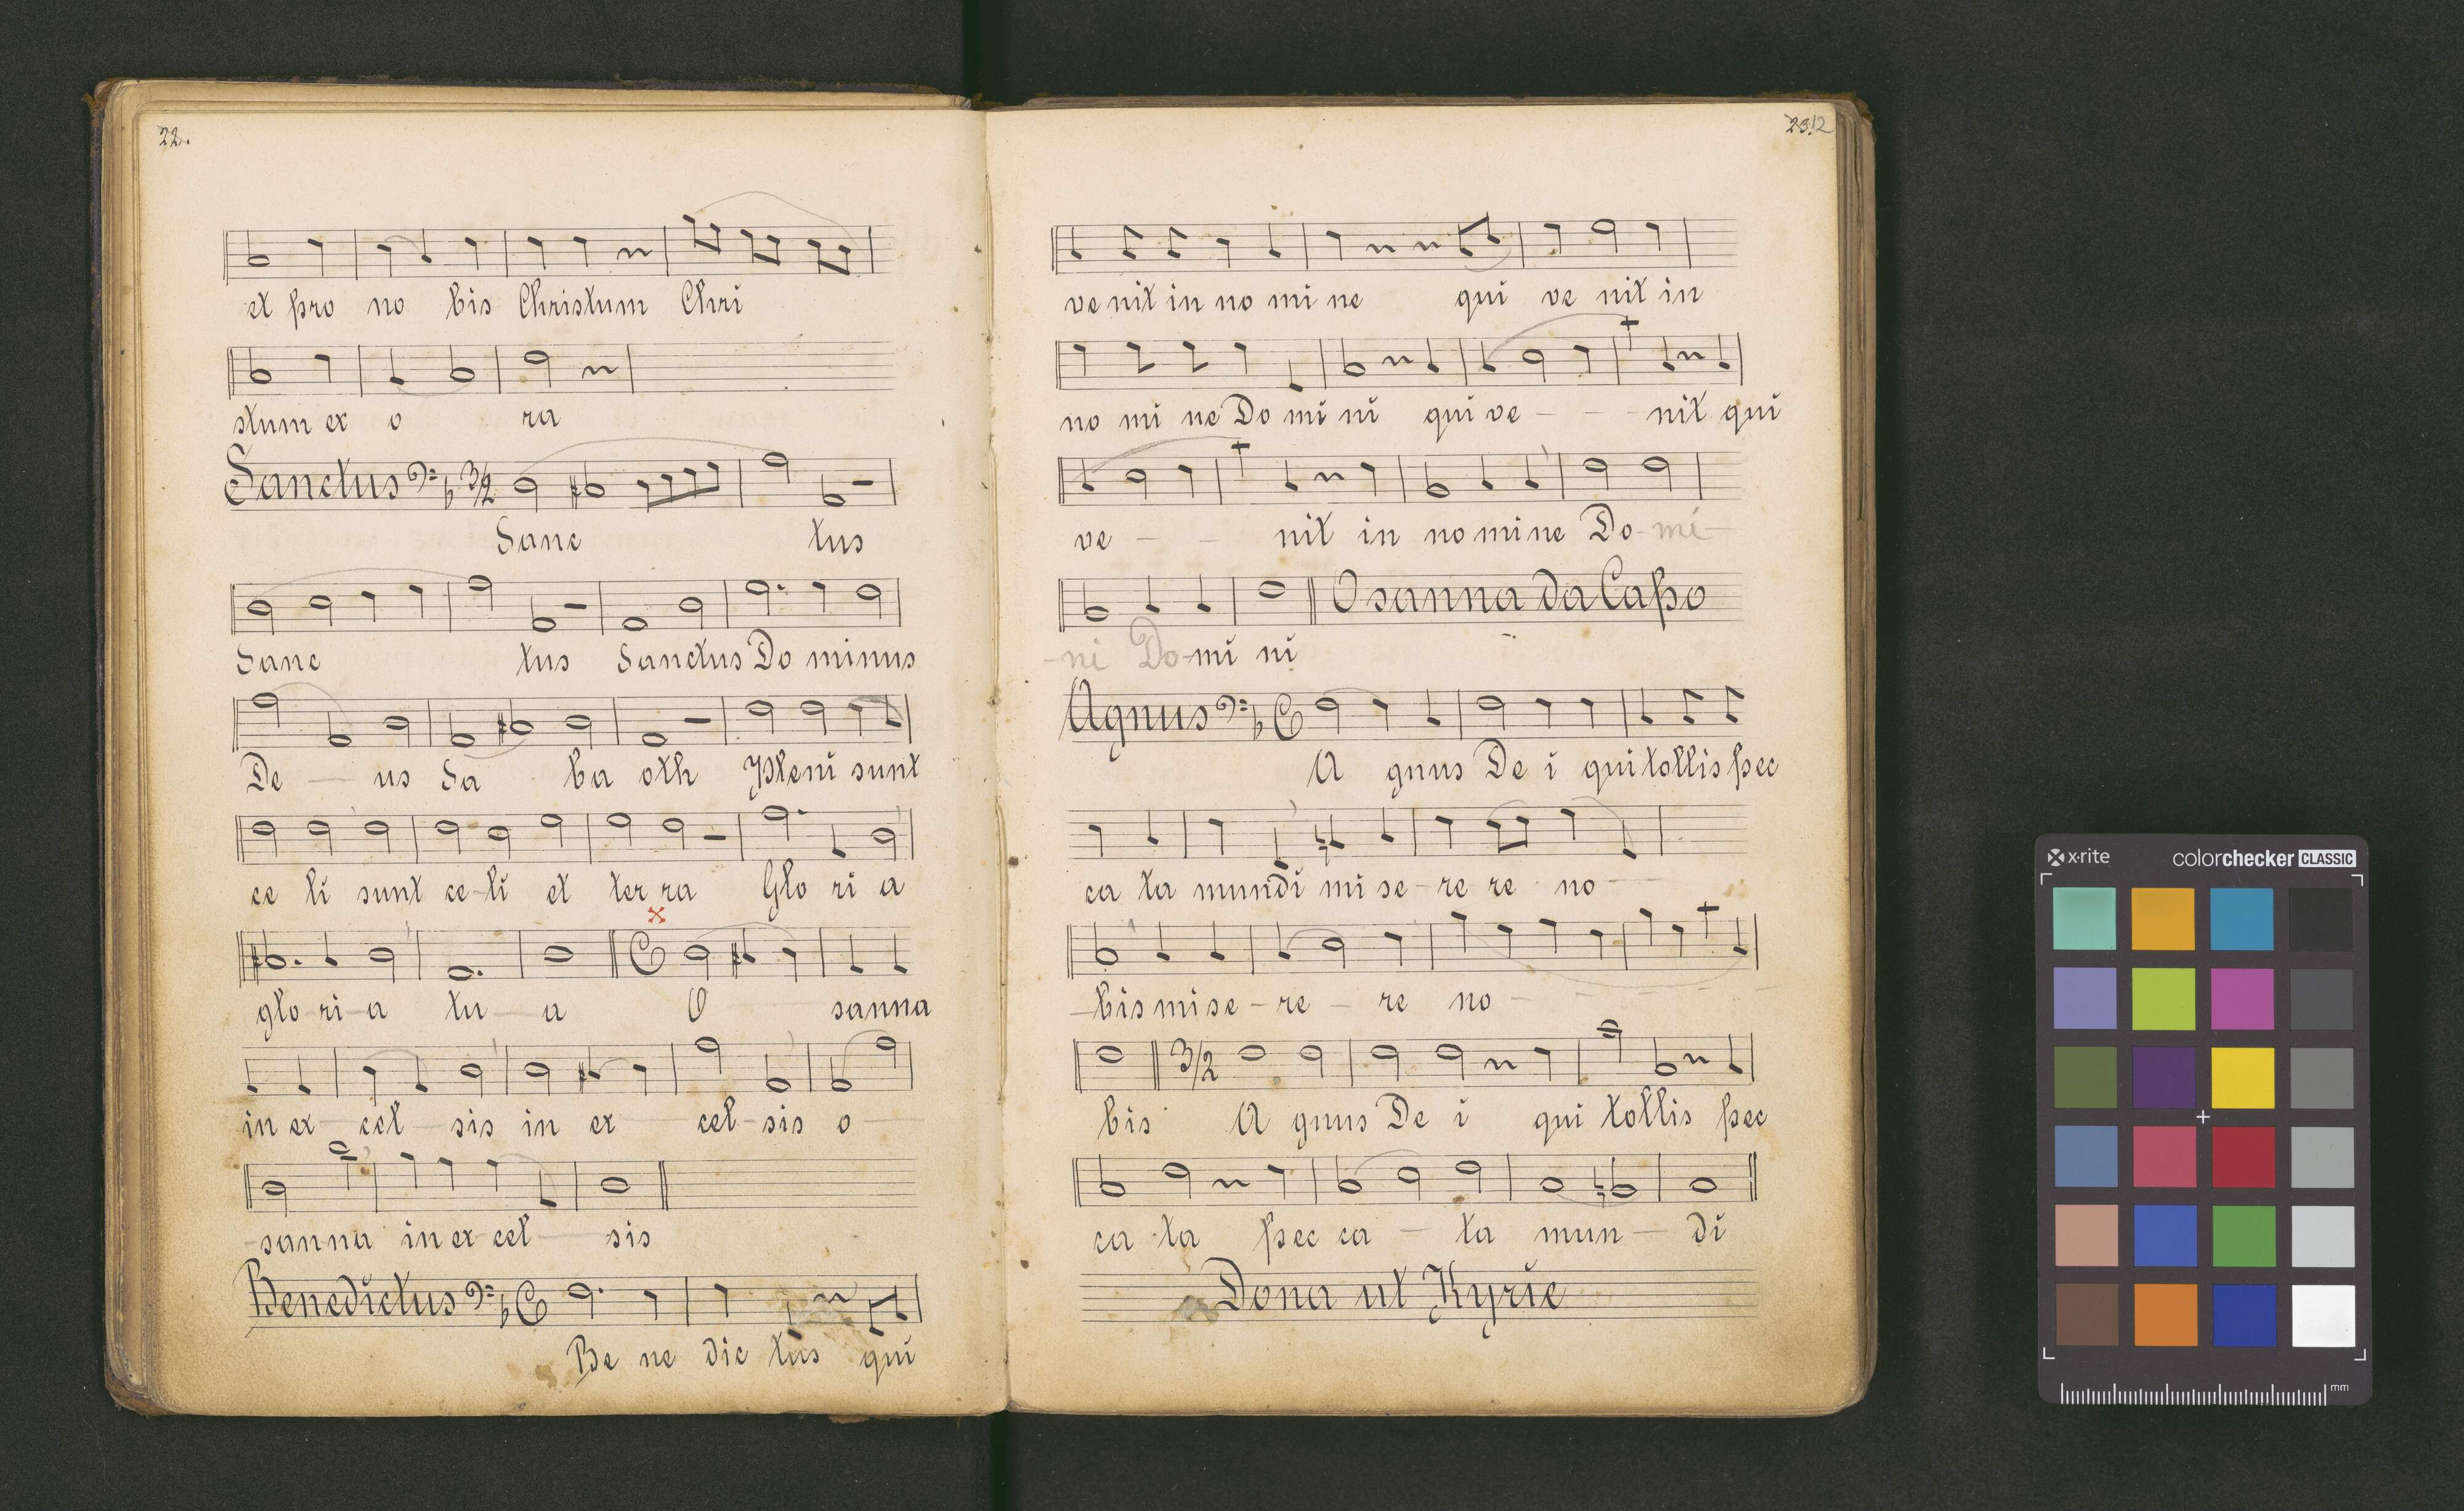 22.
et pro no bis Christum Chri
stum ex o ra
Sanctus 3/2
Sanc tus
Sanc tus Sanctus Do minus
De — us Sa ba oth Pleni sunt
ce li sunt ce-li et ter ra Glo ri a
glo-ri-a tu — a O sanna
in ex — cel — sis in ex — cel-sis o —
-sanna in ex cel — sis
Benedictus C
Be ne dic tus qui
23. 12
ve nit in no mi ne qui ve nit in
no mi ne Do mi ni qui ve - - - nit qui
ve - - nit in no mi ne Do-mi-
Osanna da Capo
-ni Do-mi ni
Agnus C
A gnus De i qui tollis pec
ca ta mundi mi se-re re no - -
-bis mi se-re — re no - - - - -
3/2
bis A gnus De i qui tollis pec
ca ta pec ca — ta mun — di
Dona ut Kyrie
x·rite colorchecker CLASSIC
mm